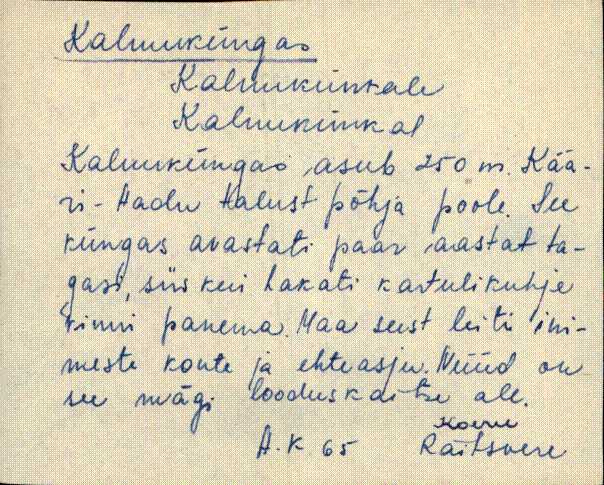 Kalmuküngas
Kalmukünkale
Kalmukünkal
Kalmuküngas asub 250 m. Kää-
ri-Aadu talust põhja poole. See
küngas avastati paar aastat ta-
gasi, siis kui hakati kartulikuhje
kinni panema. Maa seest leiti ini-
meste konte ja ehteasju. Nüüd on
see mägi looduskaitse all.
Koeru
A. K. 65 Raitsvere